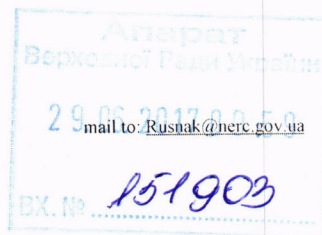 Апарат
Верховної Ради України
29.06.2017 0950
mail to: Rusnak@nerc.gov.ua
ВХ. № 151903